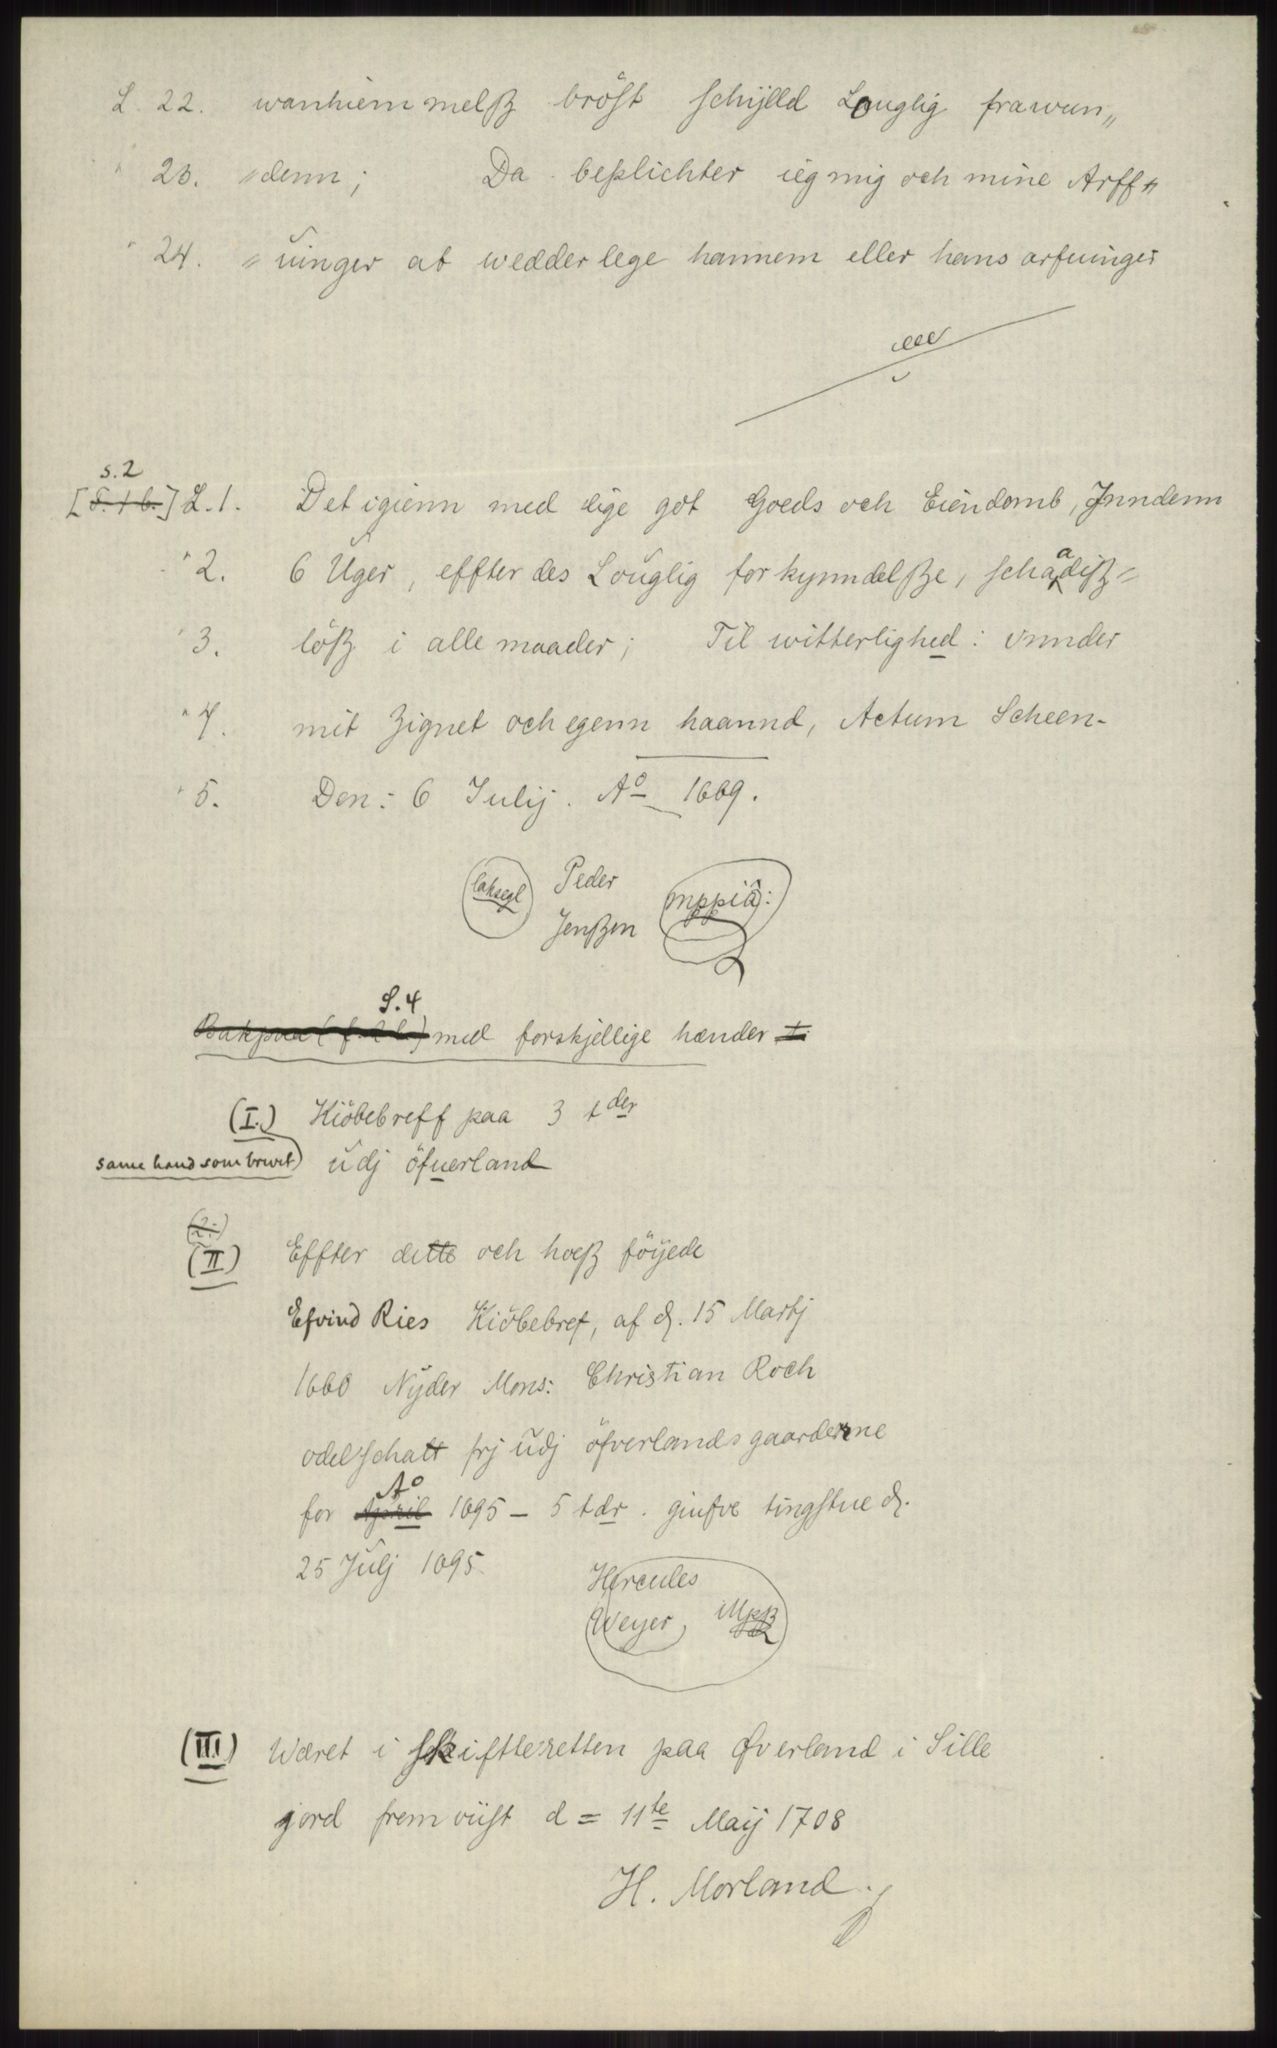 L. 22. wanhiemmelß bröst schijlld Louglig frawun„
" 23. „denn; Da beplichter ieg mig och mine Arff„
" 24. „uinger at wedderlege hannem eller hans arfuinger
s. 2
[S. 1 b.] L. 1. Det igienn med lige got Goeds och Eiendomb, Jnndenn
" 2. 6 Uger, effter des Louglig forkynndelße, schaadiß=
" 3. löß i alle maader; Til witterlighed: vnnder
" 4. mit Zignet och egenn haannd, Actum Scheen-
" 5. Den: 6 Julij. Aº 1669.
laksegl Peder mppiâ:
Jenßen
S. 4
med forskjellige hænder
(I.) Kiöbebreff paa 3 tder
same hand som brevet) udj öfuerland
(2.)
(II) Effter dette och hoeß föijede
Efvind Ries Kiöbebref, af d. 15 Martj
1660 Nyder Mons: Christian Roch
odelschatt frj udj öfverlands gaarderne
for April Aº 1695 – 5 tdr. giufve tingstue d.
25 Julj 1695.
Hercules
Weyer, Mpß
(III) Wæret i skifteretten paa Øverland i Sille
jord fremviist d = 11te Maij 1708
H. Morland.